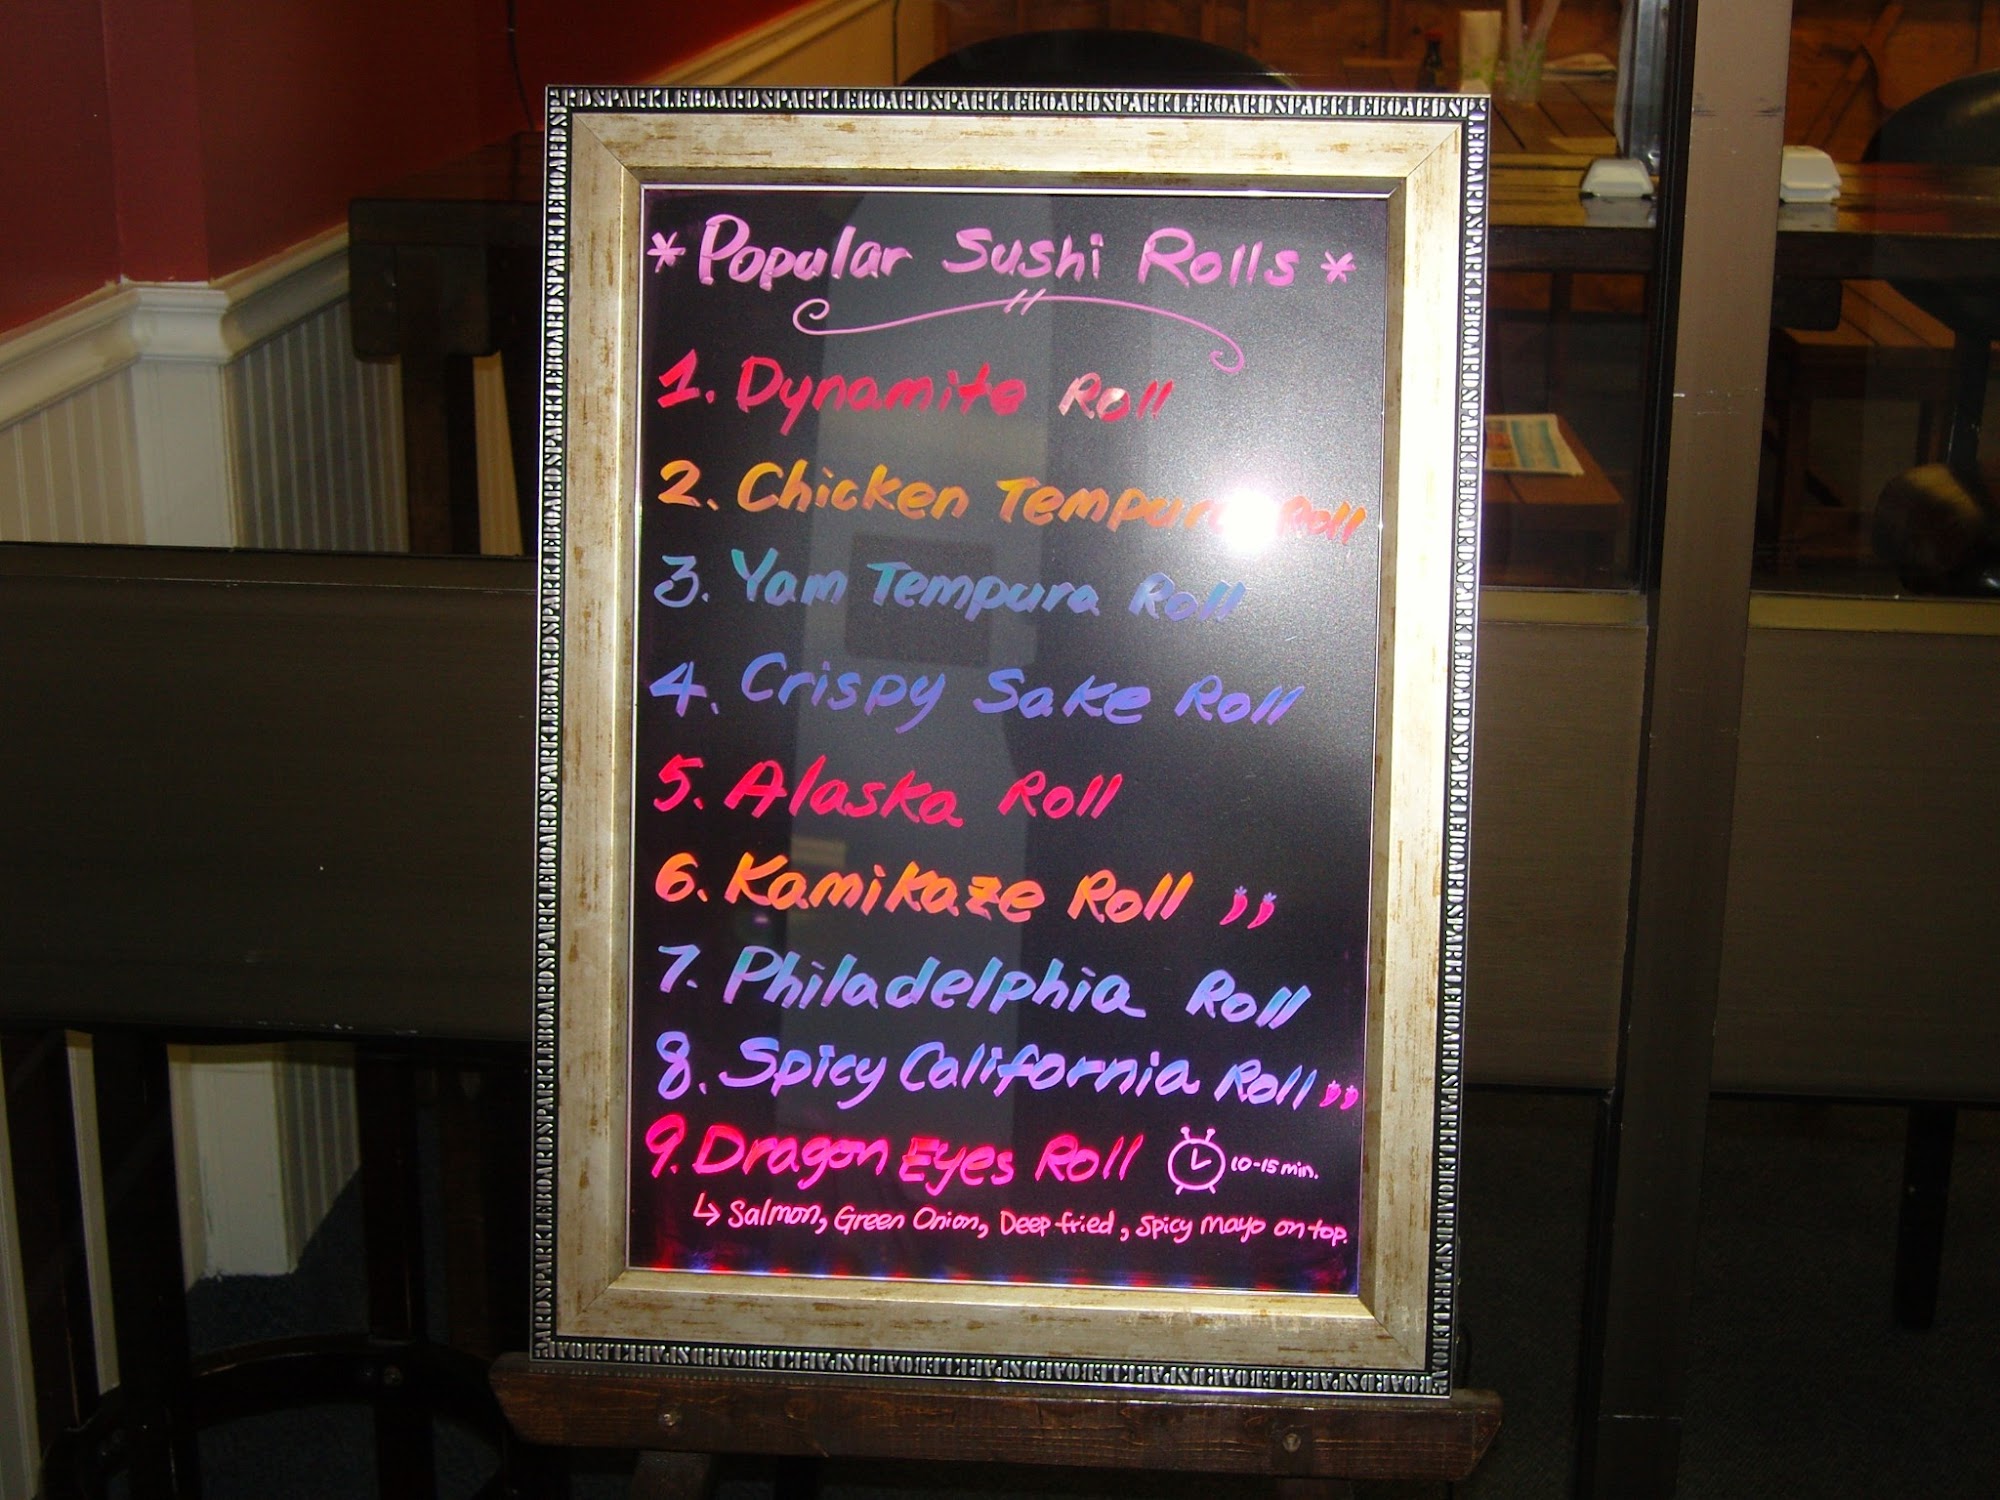 SPARKLEBOARDSPARKLEBOARDSPARKLEBOARDSPARKLEBOARDSPARKLEBOARD
* Popular Sushi Rolls *
1. Dynamite Roll
2. Chicken Tempura Roll
3. Yam Tempura Roll
4. Crispy Sake Roll
5. Alaska Roll
6. Kamikaze Roll
7. Philadelphia Roll
8. Spicy California Roll
9. Dragon Eyes Roll 10-15 min.
↳ Salmon, Green Onion, Deep fried, Spicy mayo on top.